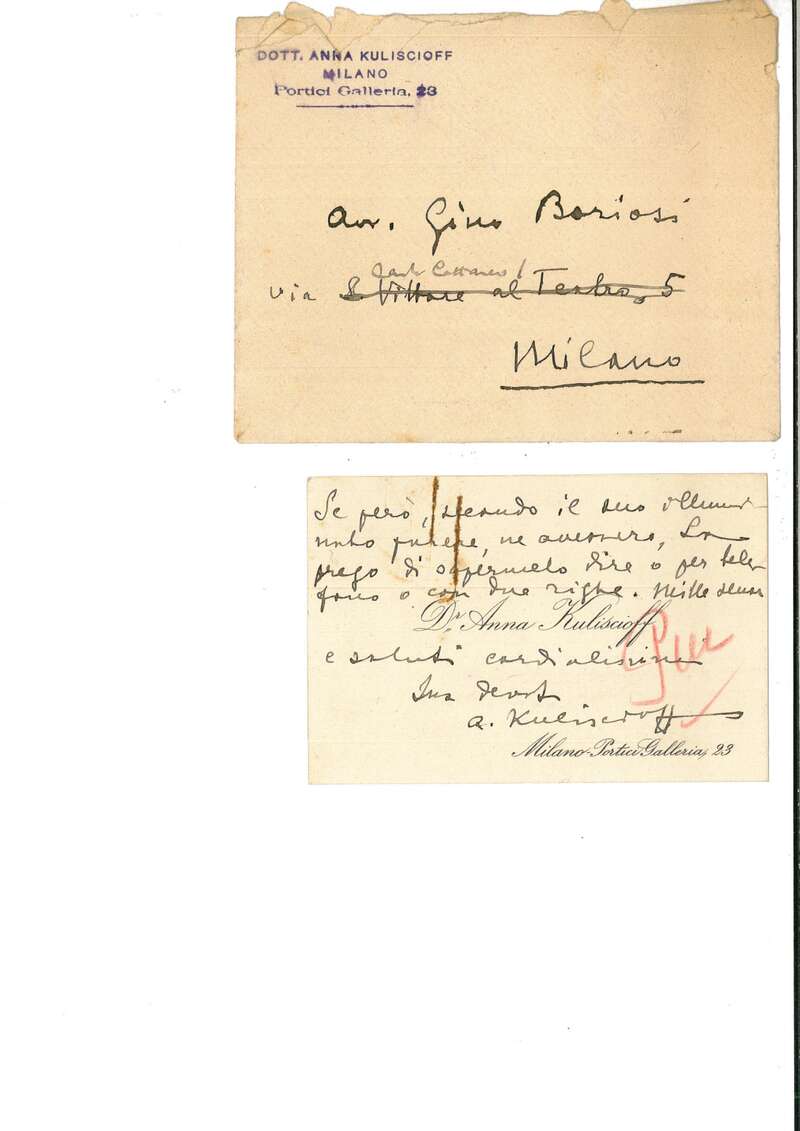 DOTT. ANNA KULISCIOFF
MILANO
Portici Galleria, 23
Avv. Gino Bariosi
Carlo Cattaneo 1
via S. Vittore al Teatro, 5
Milano
Se però, secondo il suo illumi-
nato parere, ne avessero, La
prego di sapermelo dire o per tele-
fono o con due righe. Mille scuse
Dr. Anna Kuliscioff
e saluti cordialissimi
Sua devot
A. Kuliscioff
Milano-Portici Galleria, 23